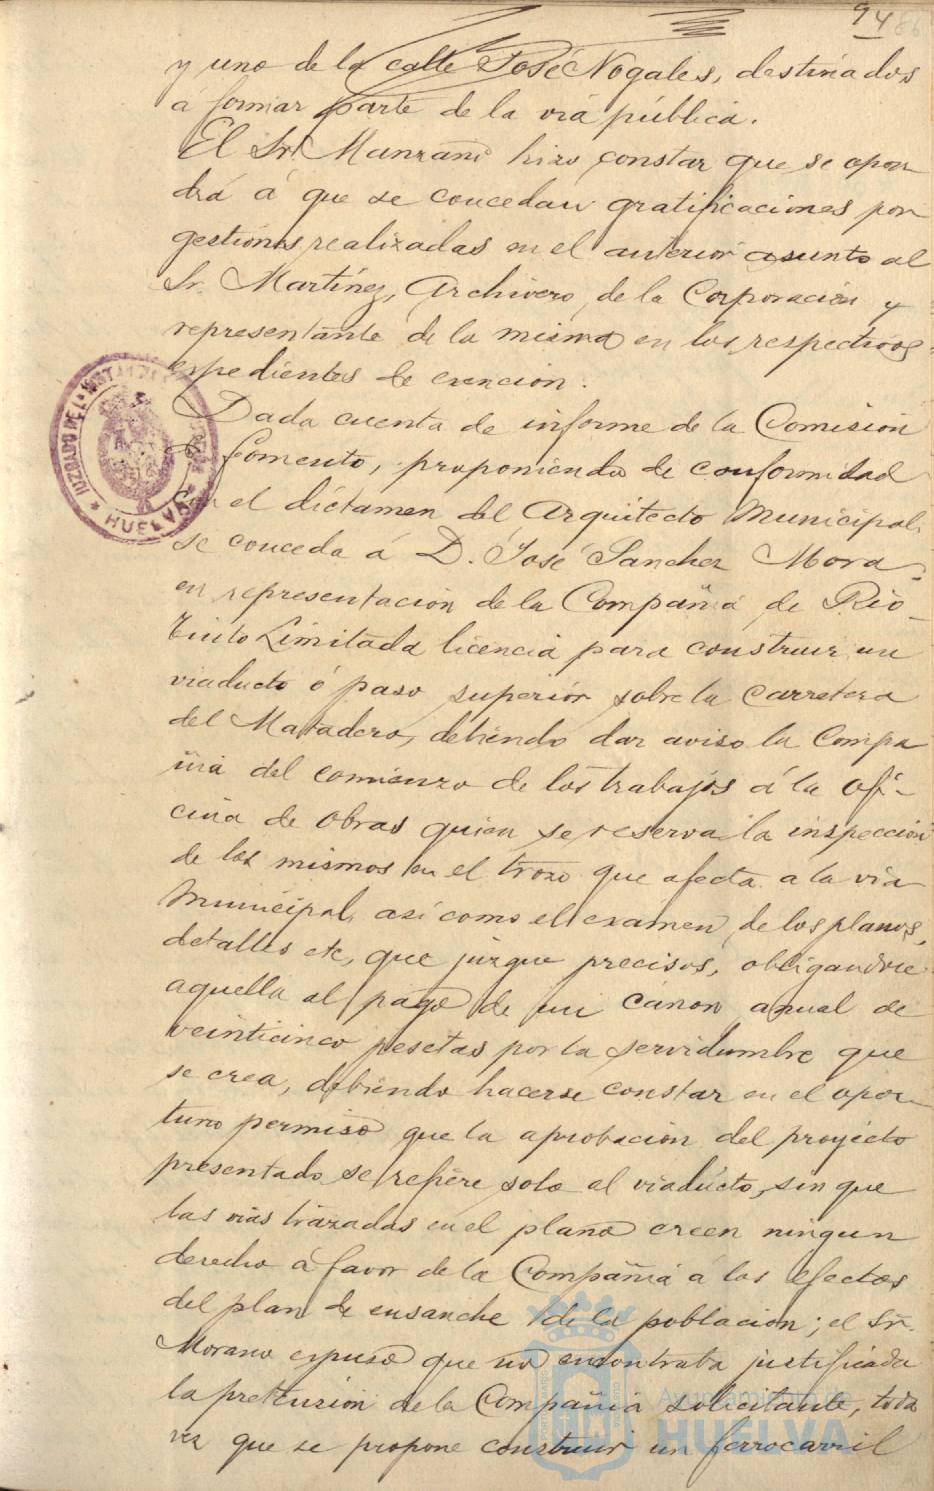 94
86
y uno de la calle José Nogales, destinados
á formar parte de la vía pública.
El Sr. Manzano hizo constar que se opon
drá á que se concedan gratificaciones por
gestiones realizadas en el anterior asunto al
Sr. Martínez, Archivero de la Corporación y
representante de la misma en los respectivos
expedientes de exención.
Dada cuenta de informe de la Comisión
Fomento, proponiendo de conformidad
con el dictamen del Arquitecto Municipal
se conceda á D. José Sanchez Mora,
en representación de la Compañia de Rio-
Tinto Limitada licencia para construir un
viaducto ó paso superior sobre la carretera
del Matadero, debiendo dar aviso la Compa
ñia del comienzo de los trabajos á la ofi-
cina de obras quien se reserva la inspección
de los mismos en el trozo que afecta a la via
Municipal, así como el examen de los planos,
detalles etc, que juzgue precisos, obligandose
aquella al pago de un cánon anual de
veinticinco pesetas por la servidumbre que
se crea, debiendo hacerse constar en el opor-
tuno permiso que la aprobacion del proyecto
presentado se refiere solo al viaducto, sin que
las vias trazadas en el plano creen ningun
derecho á favor de la Compañia á los efectos
del plan de ensanche de la poblacion; el Sr.
Morano expuso que no encontraba justificada
la pretensión de la Compañia solicitante, toda
vez que se propone construir un ferrocarril
JUZGADO DE 1ª INSTANCIA
* HUELVA *
Ayuntamiento de
HUELVA